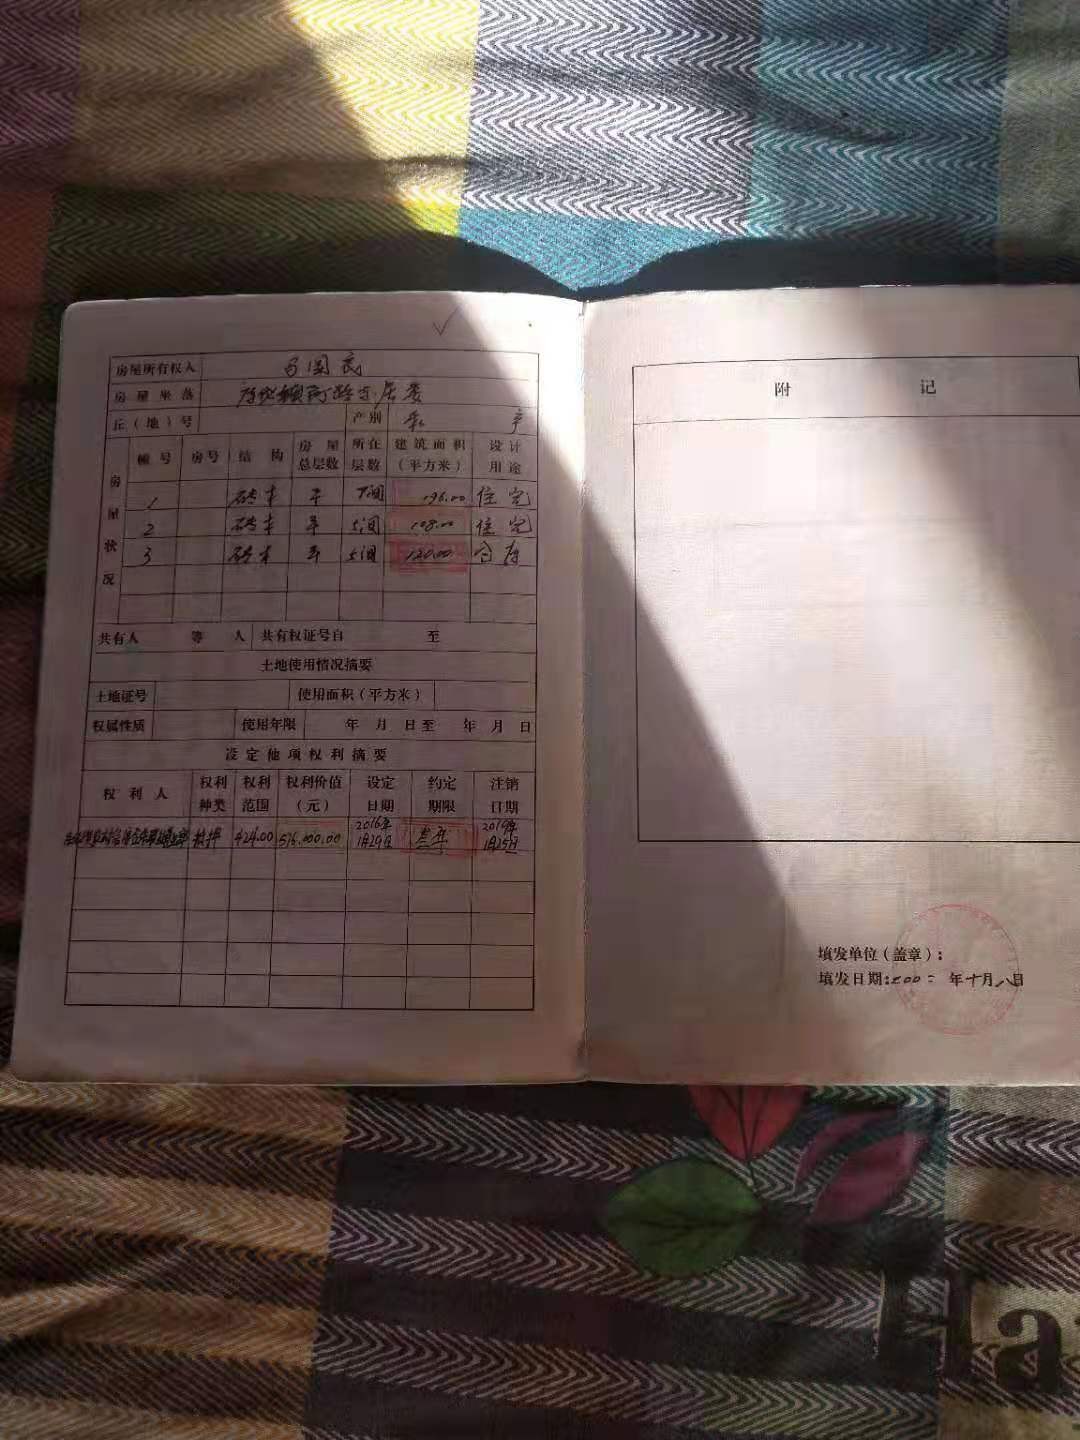 房屋所有权人 马国民
房屋坐落
丘（地）号 产别 私 产
房屋状况
幢号 房号 结构 房屋总层数 所在层数 建筑面积（平方米） 设计用途
1 砖木 平 196.00 住宅
2 砖木 平 5间 108.00 住宅
3 砖木 平 5间 120.00 仓库
共有人 等 人 共有权证号自 至
土地使用情况摘要
土地证号 使用面积（平方米）
权属性质 使用年限 年 月 日至 年 月 日
设定他项权利摘要
权利人 权利种类 权利范围 权利价值（元） 设定日期 约定期限 注销日期
抵押 424.00 576.000.00 2016年1月29日 叁年 2019年1月25日
附 记
填发单位（盖章）：
填发日期: 年十月八日
Ha